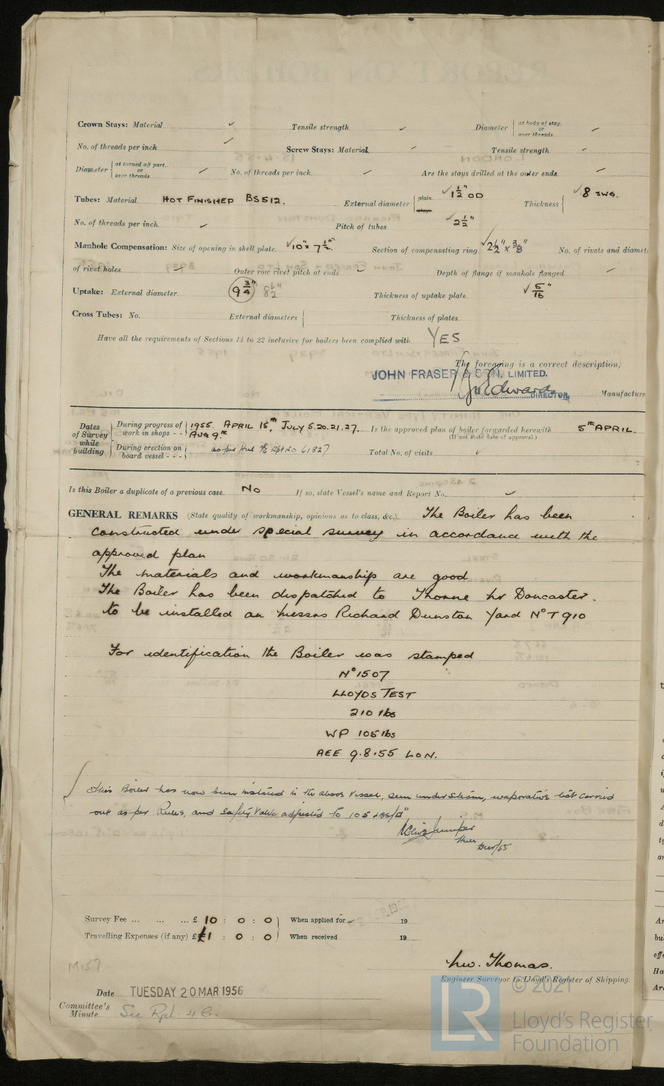 Crown Stays: Material ✓ Tensile strength ✓ Diameter at body of stay, or over threads. ✓
No. of threads per inch ✓ Screw Stays: Material ✓ Tensile strength ✓
Diameter at turned off part, or over threads. ✓ No. of threads per inch ✓ Are the stays drilled at the outer ends. ✓
Tubes: Material HOT FINISHED BS512. External diameter plain. ✓1½" OD Thickness ✓8 SWG.
No. of threads per inch ✓ Pitch of tubes ✓2½"
Manhole Compensation: Size of opening in shell plate. ✓10" × 7½" Section of compensating ring. ✓2½" × ⅜" No. of rivets and diamet
of rivet holes ✓ Outer row rivet pitch at ends ✓ Depth of flange if manhole flanged ✓
Uptake: External diameter. 9¾" 8½" Thickness of uptake plate ✓5/16"
Cross Tubes: No. External diameters Thickness of plates
Have all the requirements of Sections 14 to 22 inclusive for boilers been complied with. YES
The foregoing is a correct description,
JOHN FRASER & SON, LIMITED.
DIRECTOR. Manufacture
Dates of Survey while building
During progress of work in shops - - 1955. APRIL 15th, JULY 5.20.21.27. AUG 9th Is the approved plan of boiler forwarded herewith 5th APRIL.
(If not state date of approval.)
During erection on board vessel - - - Total No. of visits ✓
Is this Boiler a duplicate of a previous case. NO If so, state Vessel's name and Report No. ✓
GENERAL REMARKS (State quality of workmanship, opinions as to class, &c.) The Boiler has been
constructed under special survey in accordance with the
approved plan
The materials and workmanship are good
The Boiler has been dispatched to Thorne nr Doncaster.
to be installed on Messrs Richard Dunston Yard No T 910
For identification the Boiler was stamped
No 1507
LLOYDS TEST
210 lbs
WP 105 lbs
AEE 9.8.55 LON.
This Boiler has now been installed in the above vessel, seen under steam, evaporative test carried
out as per Rules, and Safety Valve adjusted to 105 lbs/□"
Survey Fee ... ... ... £ 10 : 0 : 0 When applied for 19
Travelling Expenses (if any) £ 1 : 0 : 0 When received 19
M157
W. Thomas.
Engineer Surveyor to Lloyd's Register of Shipping.
Date TUESDAY 20 MAR 1956
Committee's Minute See Rpt 4 C.
LR © 2021
Lloyd's Register
Foundation